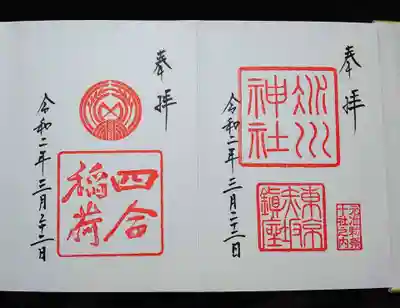 奉拝
氷川
神社
東京
赤坂
鎮座
元准勅祭
十社之内
令和二年三月二十二日
奉拝
四合
稲荷
令和二年三月二十二日